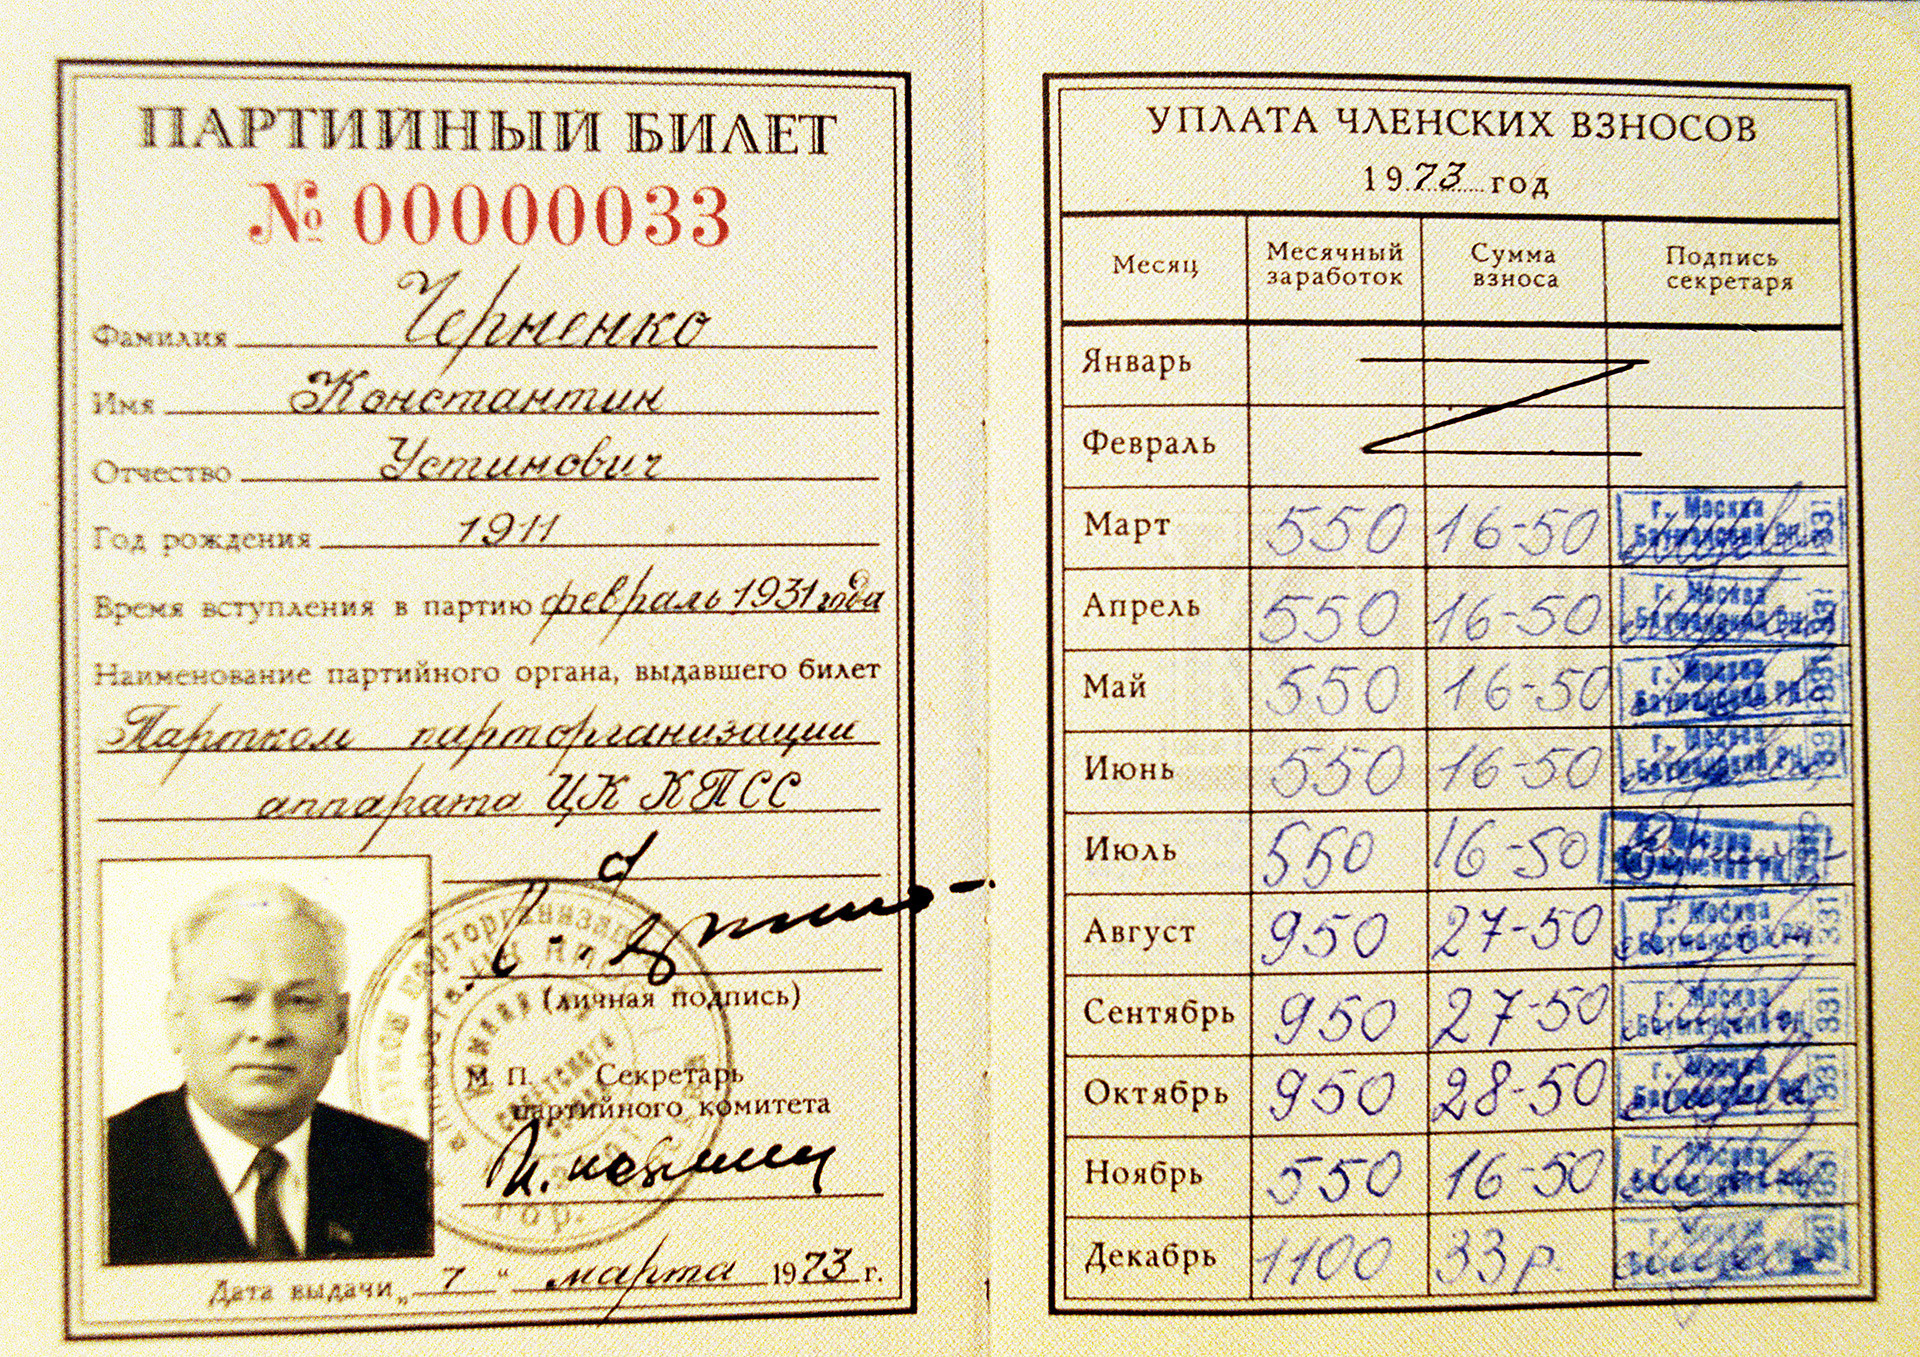 ПАРТИЙНЫЙ БИЛЕТ
№ 00000033
Фамилия Черненко
Имя Константин
Отчество Устинович
Год рождения 1911
Время вступления в партию февраль 1931 года
Наименование партийного органа, выдавшего билет
Партком парторганизации
аппарата ЦК КПСС
(личная подпись)
М. П. Секретарь
партийного комитета
Дата выдачи „ 7 “ марта 1973 г.
УПЛАТА ЧЛЕНСКИХ ВЗНОСОВ
1973 год
Месяц Месячный заработок Сумма взноса Подпись секретаря
Январь
Февраль
Март 550 16-50 г. Москва Бауманский РК 331
Апрель 550 16-50 г. Москва Бауманский РК 331
Май 550 16-50 г. Москва Бауманский РК 331
Июнь 550 16-50 г. Москва Бауманский РК 331
Июль 550 16-50 г. Москва Бауманский РК
Август 950 27-50 г. Москва Бауманский РК 331
Сентябрь 950 27-50 г. Москва Бауманский РК 331
Октябрь 950 28-50 г. Москва Бауманский РК 331
Ноябрь 550 16-50 г. Москва Бауманский РК 331
Декабрь 1100 33 р. г. Москва 331